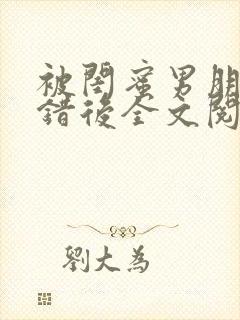 被閨蜜男朋
錯後全文閱
劉大為